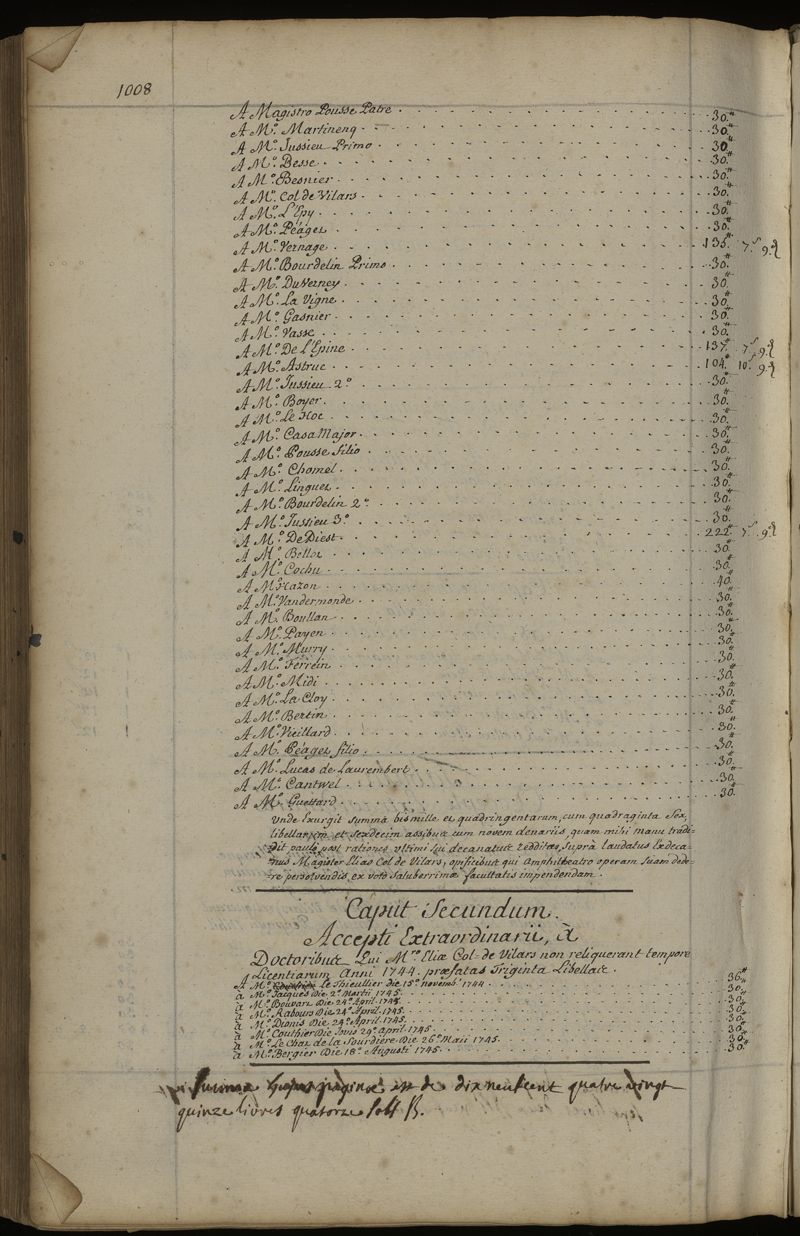 1008
A Magistro Pousse Patre . . . 30.#
A M.o Martinenq . . . 30.#
A M.o Jussieu Primo . . . 30.#
A M.o Besse . . . 30.#
A M.o Besnier . . . 30.#
A M.o Col de Vilars . . . 30.#
A M.o L'Epy . . . 30.#
A M.o Péages . . . 30.#
A M.o Vernage . . . 135.# 7.s 9.d
A M.o Bourdelin Primo . . . 30.#
A M.o DuVerney . . . 30.#
A M.o La Vigne . . . 30.#
A M.o Gasnier . . . 30.#
A M.o Vasse . . . 30.#
A M.o De L'Epine . . . 137.# 7.s 9.d
A M.o Astruc . . . 104.# 10.s 9.d
A M.o Jussieu 2.o . . . 30.#
A M.o Boyer . . . 30.#
A M.o Le Hoc . . . 30.#
A M.o CasaMajor . . . 30.#
A M.o Pousse filio . . . 30.#
A M.o Chomel . . . 30.#
A M.o Linguet . . . 30.#
A M.o Bourdelin 2.o . . . 30.#
A M.o Jussieu 3.o . . . 30.#
A M.o DeDiest . . . 222.# 7.s 9.d
A M.o Bellot . . . 30.#
A M.o Cochu . . . 30.#
A M.o Hazon . . . 40.#
A M.o Vandermonde . . . 30.#
A M.o Boullan . . . 30.#
A M.o Payen . . . 30.#
A M.o Murry . . . 30.#
A M.o Ferrein . . . 30.#
A M.o Midi . . . 30.#
A M.o La Cloy . . . 30.#
A M.o Bertin . . . 30.#
A M.o Vieillard . . . 30.#
A M.o Péages filio . . . 30.#
A M.o Lucas de Laurembert . . . 30.#
A M.o Cantwel . . . 30.#
A M.o Guettard . . . 30.#
Unde Exurgit summa bis mille et quadringentarum, cum quadraginta sex,
libellarum et sexdecim assibus cum novem denariis quam mihi manu tradi=
dit paulò post rationes ultimi sui decanatus redditas, suprà laudatus Exdeca=
nus Magister Elias Col de Vilars, opificibus qui Amphitheatro operam suam dede=
re persolvendis, ex voto saluberrimæ facultatis impendendam.
Caput Secundum.
Accepti Extraordinarii, à
Doctoribus Qui M.ro Eliæ Col-de Vilars non reliquerant tempore
Licentiarum Anni 1744. præfatas Triginta Libellas.
A M.o Le Thieullier die 15.a novemb.s 1744 . . . 36.#
à M.o Jacques Die 2.a Martii 1745 . . . 30.#
à M.o Bouvart Die 24.a April. 1745 . . . 30.#
à M.o Rabours Die 24.a April. 1745 . . . 30.#
à M.o Dionis Die 24.a April. 1745 . . . 30.#
à M.o Couthier Die Jovis 29.a April. 1745 . . . 30.#
à M.o Le Chat de la Sourdiere Die 26.a Maii 1745 . . . 30.#
à M.o Bergier Die 18.a Augusti 1745 . . . 30.#
Summa hujus paginæ est de dixneufcent quatre vingt
quinze livres quatorze sols